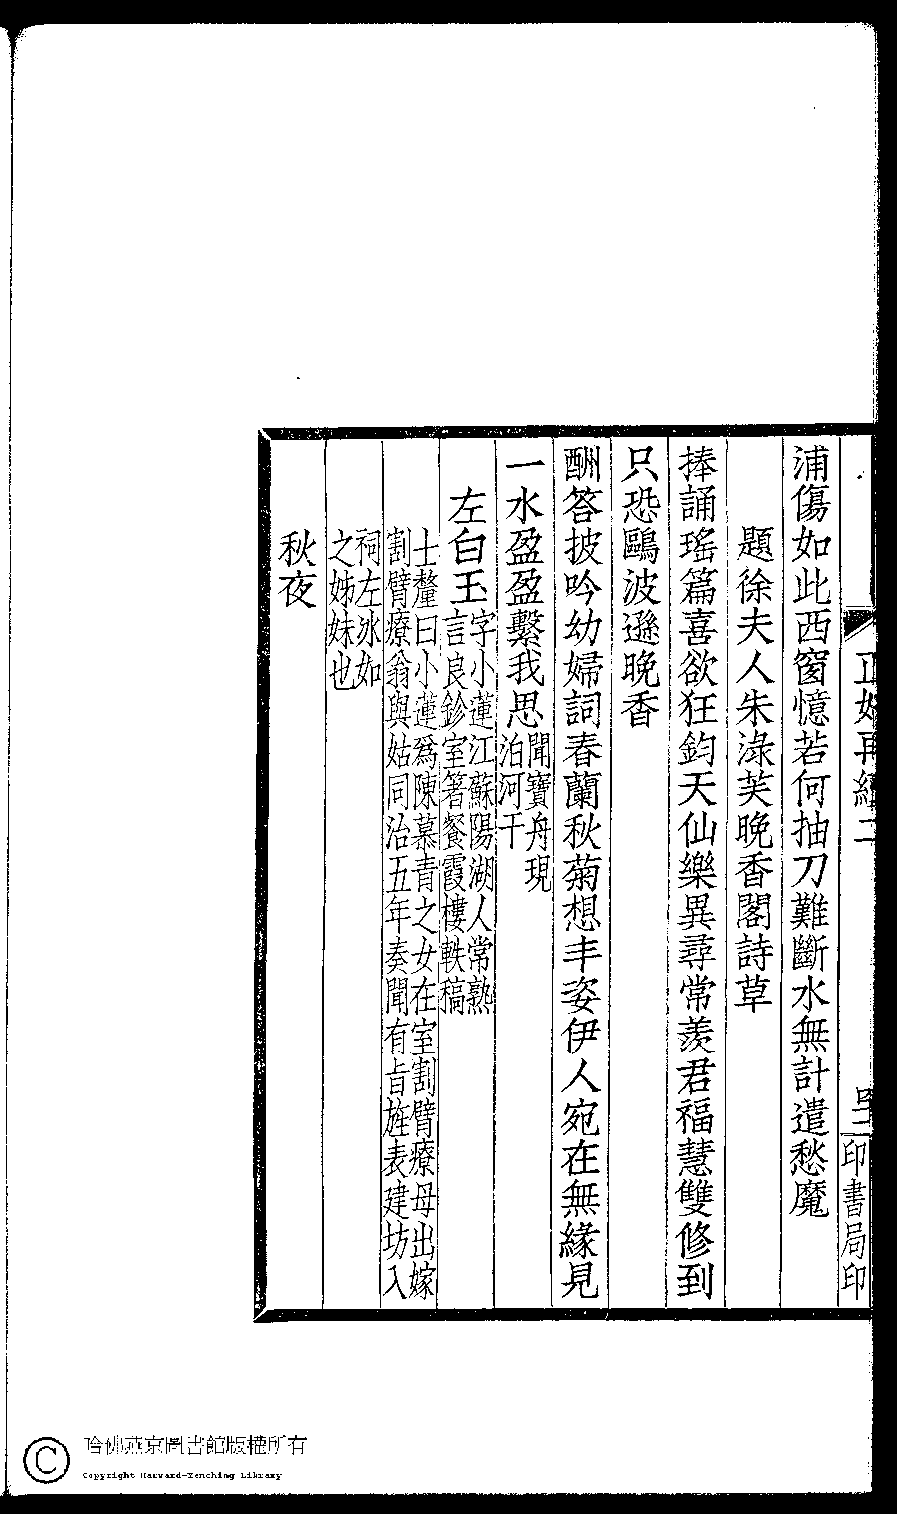 浦傷如此西窗憶若何抽刀難斷水無計遣愁魔
題徐夫人朱淥芙晚香閣詩草
捧誦瑤篇喜欲狂鈞天仙樂異尋常羨君福慧雙修到
只恐鷗波遜晚香
酬答披吟幼婦詞春蘭秋菊想丰姿伊人宛在無緣見
一水盈盈繫我思聞寶舟現
泊河干
左白玉字小蓮江蘇陽湖人常熟
言良鉁室箸餐霞樓軼稿
士釐曰小蓮爲陳慕青之女在室割臂療母出嫁
割臂療翁與姑同治五年奏聞有旨旌表建坊入
祠左冰如
之姊妹也
秋夜
印書局印
哈佛燕京圖書館版權所有
Copyright Harvard-Yenching Library